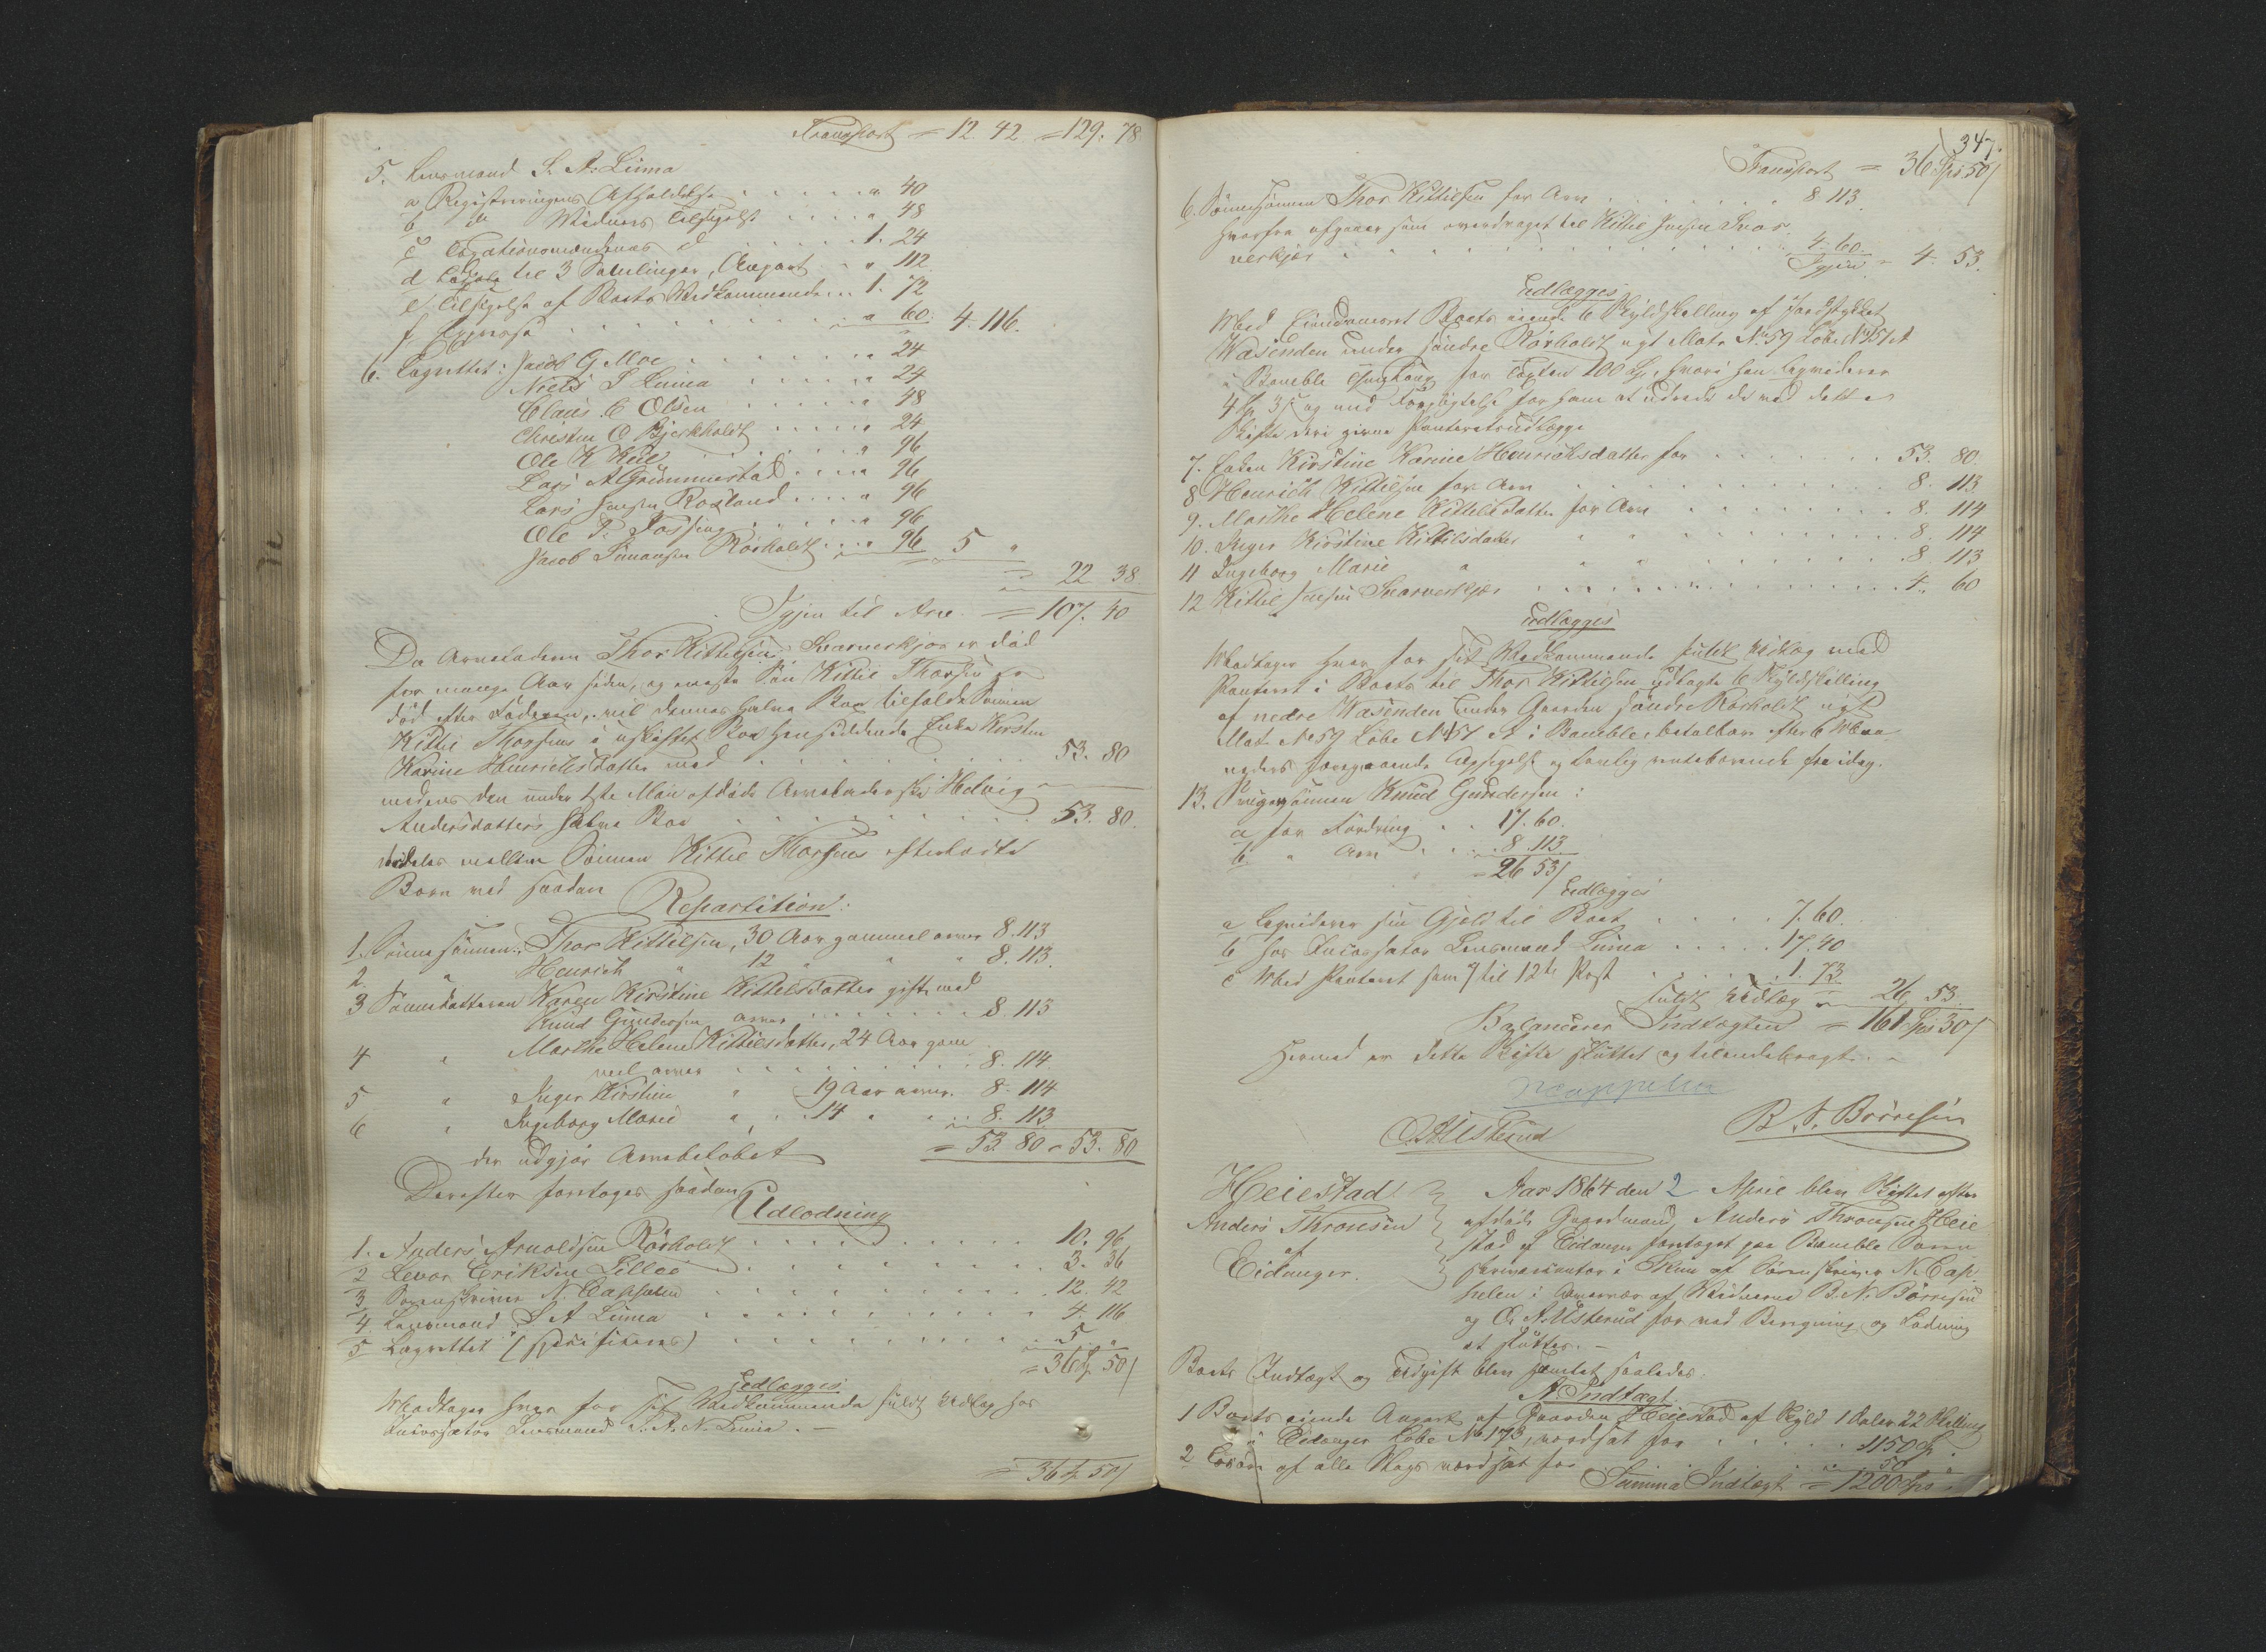 Transport = 12. 42 = 129. 78
5. Lensmand S. A. Linna
a Registreringens Afholdelse . . . . . " 40
b " Vidners Tilsigelse . . . . " 48
c Taxationsmændenes d . . . . . 1. 24
d til 3 Samlinger, Anpart . . " 112
e Tilsigelse af Boets Vedkommende . . 1. 72
f . . . . . . . . . " 60. 4. 116.
6. Lagrettet: Jacob G Moe . . . . . . " 24
Niels S Linna . . . . . " 24
Claus C Olsen . . . . . " 48
Christen O Bjerkholt . . . . . " 24
Ole K . . . . . . " 96
Lars A Grummestad . . . . " 96
Lars Jensen Rosland . . . . " 96
Ole P. Fossing . . . . . . " 96
Jacob Simonsen Rörholdt . . . " 96 5 "
= 22 38
Igjen til Arv = 107. 40
Da Arveladeren Thor Kittilsen Snarverkjær er död
for mange Aar siden, og eneste Sön Kittil Thorsen er
död efter Faderen, vil dennes halve Boe tilfalde Sönnen
Kittil Thorsens i uskiftet Boe hensiddende Enke Kirstine
Karine Henrichsdatter med . . . . . . . . . 53. 80
medens den under 1ste Mai afdöde Arveladerske Helvig
Andersdatters halve Boe . . . . . . . . . 53. 80.
deles mellem Sönnen Kittil Thorsens efterladte
Börn ved saadan
Repartition:
1. Sönnesönnen: Thor Kittilsen, 30 Aar gammel arver 8. 113
2. " Henrich " 12 " " " 8. 113.
3 Sönnedatteren Karen Kirstine Kittilsdatter gift med
Knud Gundersen arver . . . . . . . . 8. 113
4 " Marthe Helene Kittilsdatter, 24 Aar gam
mel arver . . . . . . . . . . 8. 114.
5 " Inger Kirstine " 19 Aar arver. 8. 114
6 " Ingeborg Marie " . . 14 " " . . 8. 113
der udgjör Arvebelöbet = 53 80 = 53. 80
Derefter foretoges saadan
Udlodning
1. Anders Arnoldsen Rörholdt . . . . . . . . . 10. 96
2 Levor Eriksen Lilleö . . . . . . . . . . . 3. 36
3 Sorenskriver N. Cappelen . . . . . . . . . 12. 42
4 Lensmand S A Linna . . . . . . . . . . 4. 116
5 Lagrettet (specificeres) . . . . . . . . . 5 "
= 36 Sp 50 /
Udlægges
Modtager hver for sit Vedkommende fuldt Udlæg hos
Incassator Lensmand S. A. N. Linna. –
= 36 Sp 50 /
347.
Transport = 36 Sps 50 /
6. Sönnesönnen Thor Kittilsen for Arv . . . . . . . 8 113.
hvorfra afgaaer som overdraget til Kittil Jensen Snar
verkjær . . . . . . . . . . . . . . . 4. 60.
Igjen = 4. 53.
Udlægges
Med Eiendomsret Boets eiende 6 Skyldskilling af Jordstykket
Wasenden under söndre Rörholdt nyt Matr No 59 Löbe No 157 A
i Bamble Thinglaug for Taxten 100 Sp, hvori han liqviderer
4 Sp 3 / og med Forpligtelse for ham at udrede de ved dette
Skifte deri givne Panteretsudlægge
7. Enken Kirstine Karine Henrichsdatter for . . . . . . . 53. 80.
8 Henrich Kittilsen for Arv . . . . . . . . . . 8. 113
9. Marthe Helene Kittilsdatter for Arv . . . . . . . . 8. 114
10. Inger Kirstine Kittilsdatter " " . . . . . . . . 8. 114
11 Ingeborg Marie " " " . . . . . . . . 8. 113
12 Kittil Jensen Snarverkjær . . . . . . . . . . . 4. 60
Udlægges
Modtager hver for sit Vedkommende fuldt Udlæg med
Panteret i Boets til Thor Kittilsen udlagte 6 Skyldskilling
af nedre Wasenden under Gaarden söndre Rörholdt nyt
Mat. No 59 Löbe No 157 A i Bamble, betalbar efter 6 Maa
neders foregaaende Opsigelse og lovlig rentebærende fra idag.
13. Svigersönnen Knud Gundersen:
a for Fordring . . 17. 60.
b " Arv . . . . 8. 113.
= 26 53 /
Udlægges
a liqviderer sin Gjæld til Boet . . . . . 7. 60.
b hos Incassator Lensmand Linna . . . . . 17. 40
c Med Panteret som 7 til 12te Post . . . . . 1. 73
fuldt Udlæg = 26. 53.
Balancerer Indtægten = 161 Sps 30 /
Hermed er dette Skifte sluttet og tilendebragt. –
NCappelen
O. A. Usterud B. N. Börresen
Heiestad
Anders Thronsen
af
Eidanger.
Aar 1864 den 2 April blev Skiftet efter
afdöde Gaardmand Anders Thronsen Heie
stad af Eidanger foretaget paa Bamble Soren
skriverkontor i Skien af Sorenskriver N. Cap
pelen i Overvær af Vidnerne B. N. Börresen
og O. A. Usterud for ved Beregning og Lodning
at sluttes. –
Boets Indtægt og Udgift blev samlet saaledes
A. Indtægt.
1 Boets eiende Anpart af Gaarden Heiestad af Skyld 1 Daler 22 Skilling
i Eidanger Löbe No 173, værdsat for . . . . . . 1150 Sp.
2 Lösöre af alle Slags værdsat for . . . . . 50 "
Summa Indtægt = 1200 Sps "